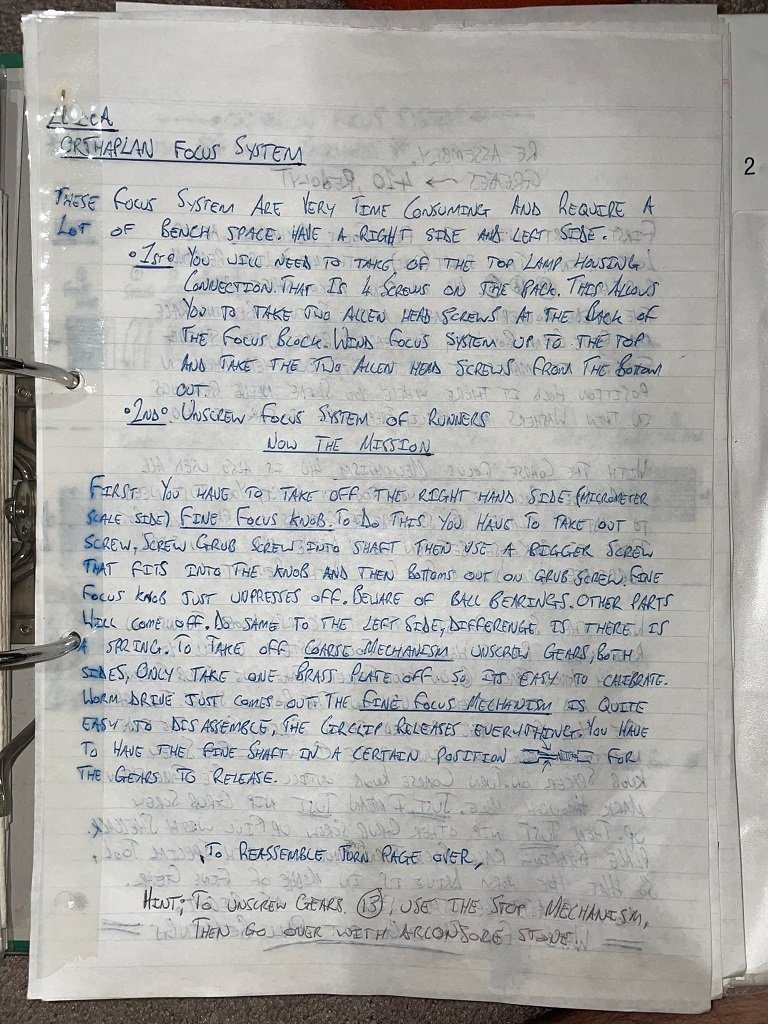 ORTHAPLAN FOCUS SYSTEM
2
THESE FOCUS SYSTEM ARE VERY TIME CONSUMING AND REQUIRE A
LOT OF BENCH SPACE. HAVE A RIGHT SIDE AND LEFT SIDE.
1ST YOU WILL NEED TO TAKE OF THE TOP LAMP HOUSING
CONNECTION. THAT IS 4 SCREWS ON THE BACK. THIS ALLOWS
YOU TO TAKE TWO ALLEN HEAD SCREWS AT THE BACK OF
THE FOCUS BLOCK. WIND FOCUS SYSTEM UP TO THE TOP
AND TAKE THE TWO ALLEN HEAD SCREWS FROM THE BOTTOM
OUT.
2ND UNSCREW FOCUS SYSTEM OF RUNNERS
NOW THE MISSION
FIRST YOU HAVE TO TAKE OFF THE RIGHT HAND SIDE (MICROMETER
SCALE SIDE) FINE FOCUS KNOB. TO DO THIS YOU HAVE TO TAKE OUT
SCREW, SCREW GRUB SCREW INTO SHAFT THEN USE A BIGGER SCREW
THAT FITS INTO THE KNOB AND THEN BOTTOMS OUT ON GRUB SCREW. FINE
FOCUS KNOB JUST UNPRESSES OFF. BEWARE OF BALL BEARINGS. OTHER PARTS
WILL COME OFF. DO SAME TO THE LEFT SIDE, DIFFERENGE IS THERE IS
A SPRING. TO TAKE OFF COARSE MECHANISM UNSCREW GEARS, BOTH
SIDES, ONLY TAKE ONE BRASS PLATE OFF SO ITS EASY TO CALIBRATE.
WORM DRIVE JUST COMES OUT. THE FINE FOCUS MECHANISM IS QUITE
EASY TO DISASSEMBLE, THE CIRCLIP RELEASES EVERYTHING. YOU HAVE
TO HAVE THE FINE SHAFT IN A CERTAIN POSITION FOR
THE GEARS TO RELEASE.
TO REASSEMBLE TURN PAGE OVER,
HINT; TO UNSCREW GEARS 13, USE THE STOP MECHANISM,
THEN GO OVER WITH STONE!